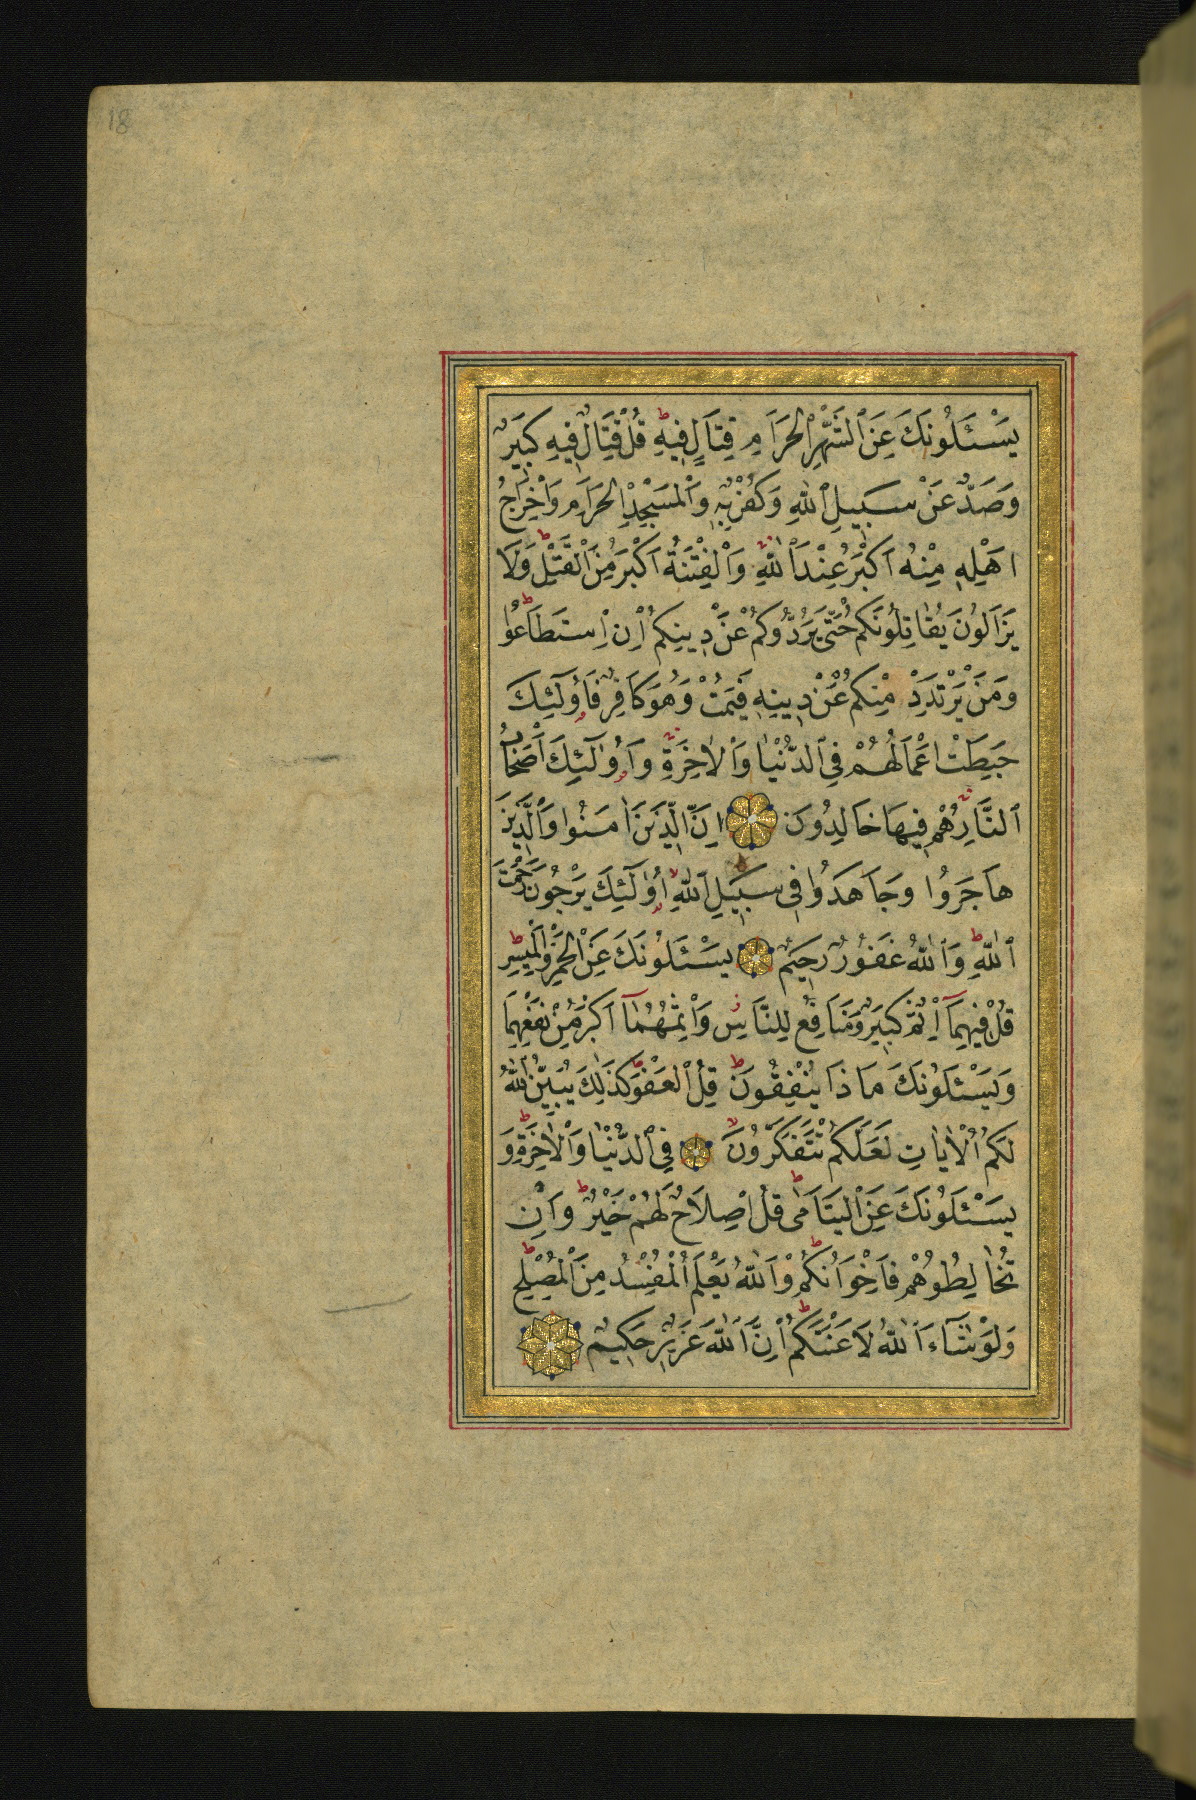 18
يَسْـَٔلُونَكَ عَنِ ٱلشَّهْرِ ٱلْحَرَامِ قِتَالٍ فِيهِ ط قُلْ قِتَالٌ فِيهِ كَبِيرٌ
وَصَدٌّ عَنْ سَبِيلِ ٱللّٰهِ وَكُفْرٌ بِهِ وَٱلْمَسْجِدِ ٱلْحَرَامِ وَاِخْرَاجُ
اَهْلِهِ مِنْهُ اَكْبَرُ عِنْدَ ٱللّٰهِ وَٱلْفِتْنَةُ اَكْبَرُ مِنَ ٱلْقَتْلِ ط وَلَا
يَزَالُونَ يُقَاتِلُونَكُمْ حَتّٰى يَرُدُّوكُمْ عَنْ دِينِكُمْ اِنِ ٱسْتَطَاعُوا ط
وَمَنْ يَرْتَدِدْ مِنْكُمْ عَنْ دِينِهِ فَيَمُتْ وَهُوَ كَافِرٌ فَاُولٰٓئِكَ
حَبِطَتْ اَعْمَالُهُمْ فِي ٱلدُّنْيَا وَٱلْاٰخِرَةِ وَاُولٰٓئِكَ اَصْحَابُ
ٱلنَّارِ هُمْ فِيهَا خَالِدُونَ اِنَّ ٱلَّذِينَ اٰمَنُوا وَٱلَّذِينَ
هَاجَرُوا وَجَاهَدُوا فِي سَبِيلِ ٱللّٰهِ اُولٰٓئِكَ يَرْجُونَ رَحْمَتَ
ٱللّٰهِ ط وَٱللّٰهُ غَفُورٌ رَحِيمٌ يَسْـَٔلُونَكَ عَنِ ٱلْخَمْرِ وَٱلْمَيْسِرِ ط
قُلْ فِيهِمَآ اِثْمٌ كَبِيرٌ وَمَنَافِعُ لِلنَّاسِ ز وَاِثْمُهُمَآ اَكْبَرُ مِنْ نَفْعِهِمَا
وَيَسْـَٔلُونَكَ مَاذَا يُنْفِقُونَ ط قُلِ ٱلْعَفْوَ ط كَذٰلِكَ يُبَيِّنُ ٱللّٰهُ
لَكُمُ ٱلْاٰيَاتِ لَعَلَّكُمْ تَتَفَكَّرُونَ لا فِي ٱلدُّنْيَا وَٱلْاٰخِرَةِ ط وَ
يَسْـَٔلُونَكَ عَنِ ٱلْيَتَامٰى ط قُلْ اِصْلَاحٌ لَهُمْ خَيْرٌ ط وَاِنْ
تُخَالِطُوهُمْ فَاِخْوَانُكُمْ ط وَٱللّٰهُ يَعْلَمُ ٱلْمُفْسِدَ مِنَ ٱلْمُصْلِحِ ط
وَلَوْ شَآءَ ٱللّٰهُ لَاَعْنَتَكُمْ ط اِنَّ ٱللّٰهَ عَزِيزٌ حَكِيمٌ